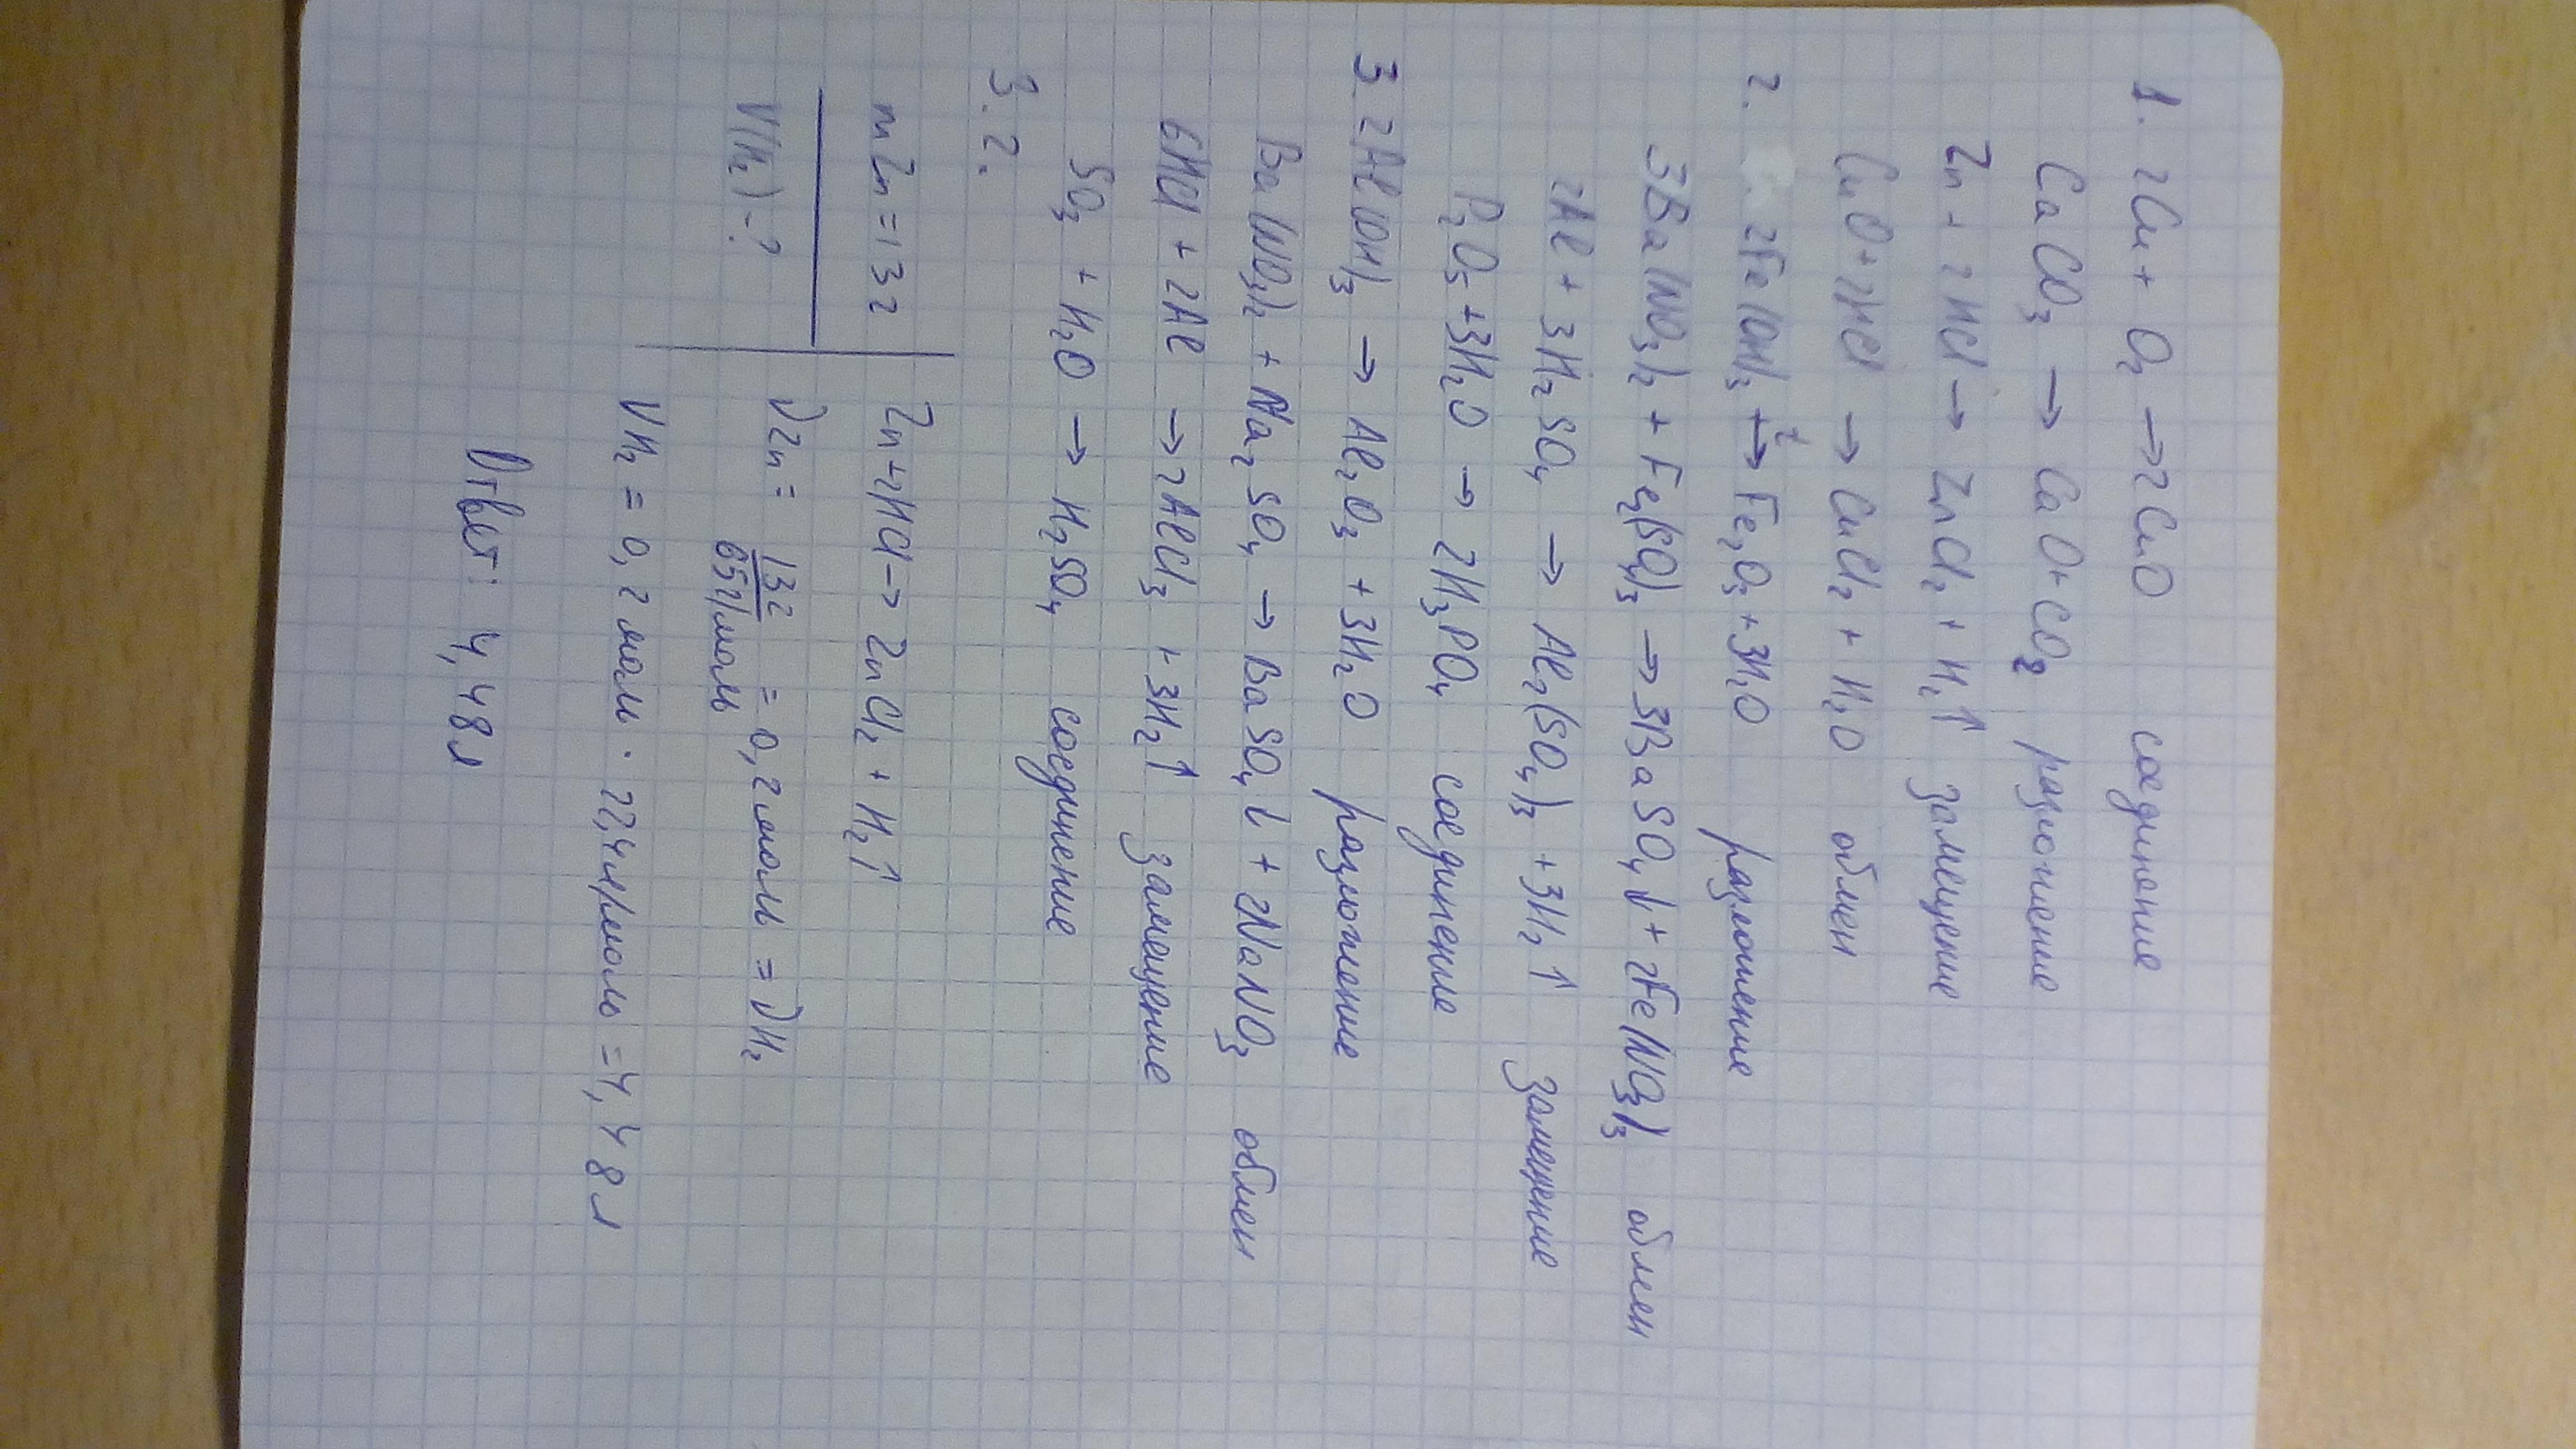 1. 2Cu + O₂ → 2CuO соединение
CaCO₃ → CaO + CO₂ разложение
Zn + 2HCl → ZnCl₂ + H₂↑ замещение
CuO + 2HCl → CuCl₂ + H₂O обмен
2. 2Fe(OH)₃ t→ Fe₂O₃ + 3H₂O разложение
3Ba(NO₃)₂ + Fe₂(SO₄)₃ → 3BaSO₄↓ + 2Fe(NO₃)₃ обмен
2Al + 3H₂SO₄ → Al₂(SO₄)₃ + 3H₂↑ замещение
P₂O₅ + 3H₂O → 2H₃PO₄ соединение
3. 2Al(OH)₃ → Al₂O₃ + 3H₂O разложение
Ba(NO₃)₂ + Na₂SO₄ → BaSO₄↓ + 2NaNO₃ обмен
6HCl + 2Al → 2AlCl₃ + 3H₂↑ замещение
SO₃ + H₂O → H₂SO₄ соединение
3.2.
mZn = 13г
V(H₂) - ?
Zn + 2HCl → ZnCl₂ + H₂↑
νZn = 13г/65г/моль = 0,2моль = νH₂
VH₂ = 0,2моль · 22,4л/моль = 4,48л
Ответ: 4,48л